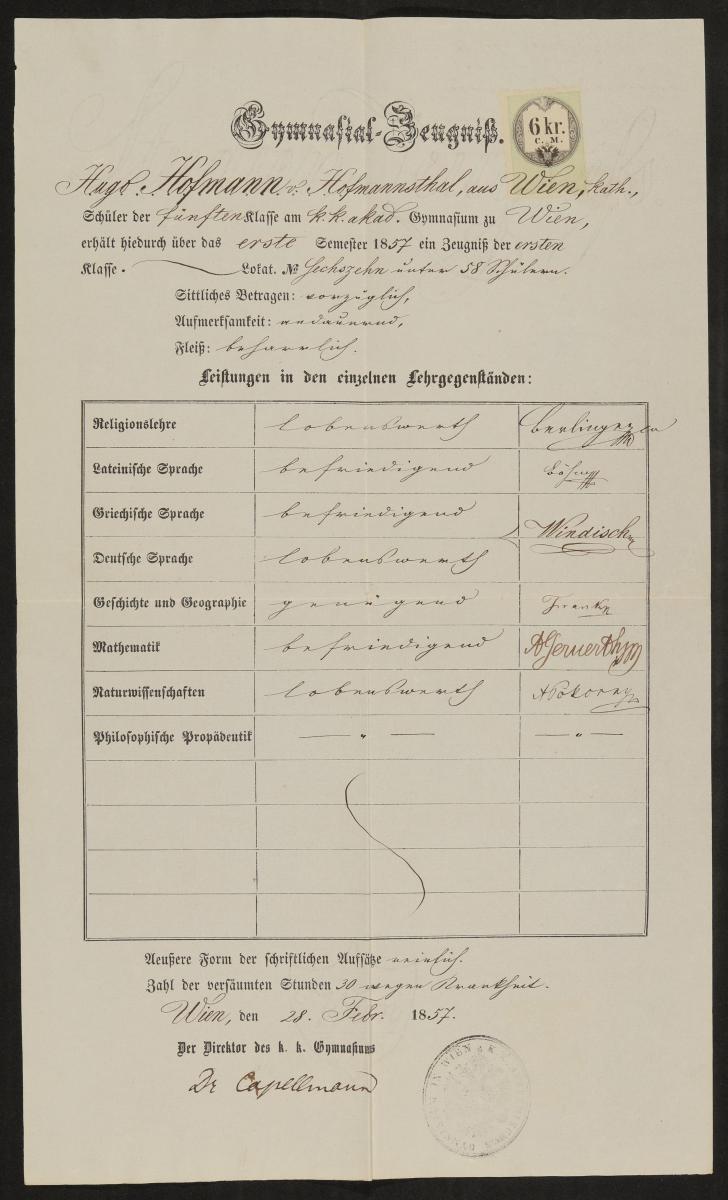 Gymnasial-Zeugniß.
6 kr.
C. M.
Hugo Hofmann v. Hofmannsthal, aus Wien, kath.,
Schüler der fünften Klasse am k. k. akad. Gymnasium zu Wien,
erhält hiedurch über das erste Semester 1857 ein Zeugniß der ersten
Klasse. Lokat. No Sechszehn unter 58 Schülern.
Sittliches Betragen: vorzüglich,
Aufmerksamkeit: andauernd,
Fleiß: beharrlich.
Leistungen in den einzelnen Lehrgegenständen:
Religionslehre lobenswerth
Lateinische Sprache befriedigend
Griechische Sprache befriedigend
Windisch
Deutsche Sprache lobenswerth
Geschichte und Geographie genügend
Mathematik befriedigend
Naturwissenschaften lobenswerth A Pokorny
Philosophische Propädeutik — „ — — „ —
Aeußere Form der schriftlichen Aufsätze reinlich.
Zahl der versäumten Stunden 30 wegen Krankheit.
Wien, den 28. Febr. 1857.
Der Direktor des k. k. Gymnasiums
Dr Capellmann
IN WIEN